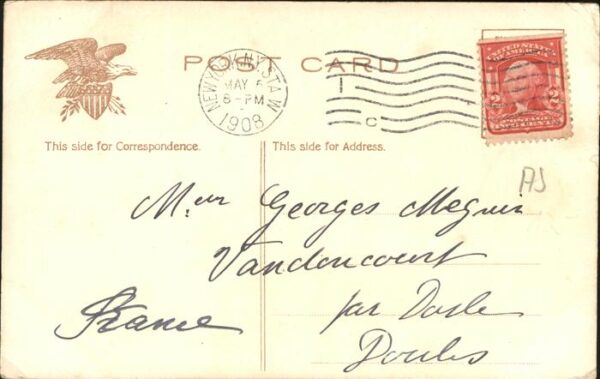 POST CARD
NEW YORK, N.Y. STA. W
MAY 5
8-PM
1908
I
C
UNITED STATES
OF AMERICA
2 2
POSTAGE
TWO CENTS
This side for Correspondence.
This side for Address.
AJ
Mr Georges Meguin
Vandoncourt
par Dasle
Doubs
France